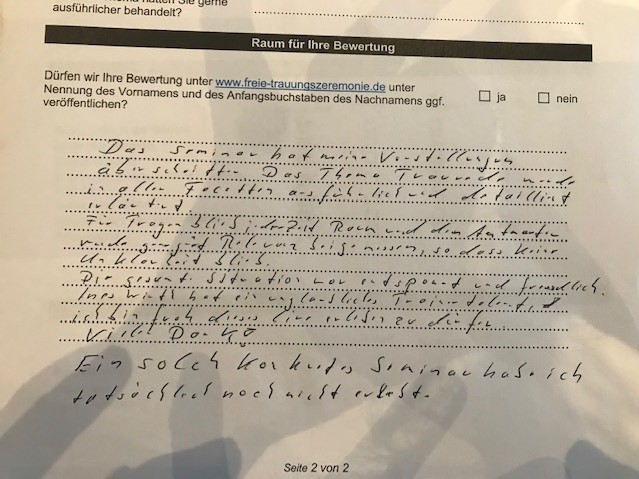 hätten Sie gerne
ausführlicher behandelt?
Raum für Ihre Bewertung
Dürfen wir Ihre Bewertung unter www.freie-trauungszeremonie.de unter
Nennung des Vornamens und des Anfangsbuchstaben des Nachnamens ggf.
veröffentlichen?
ja
nein
Das Seminar hat meine Vorstellungen
überschritten. Das Thema Traurede wurde
in allen Facetten ausführlich und detailliert
erläutert
Für Fragen blieb jederzeit Raum und den Antworten
wurde Relevanz beigemessen, so dass keine
Unklarheit blieb.
Die gesamt Situation war entspannt und freundlich.
hat ein unglaubliches Trainertalent &
ich bin froh dieses live erleben zu dürfen.
Vielen Dank
Ein solch konkretes Seminar habe ich
tatsächlich noch nicht erlebt.
Seite 2 von 2